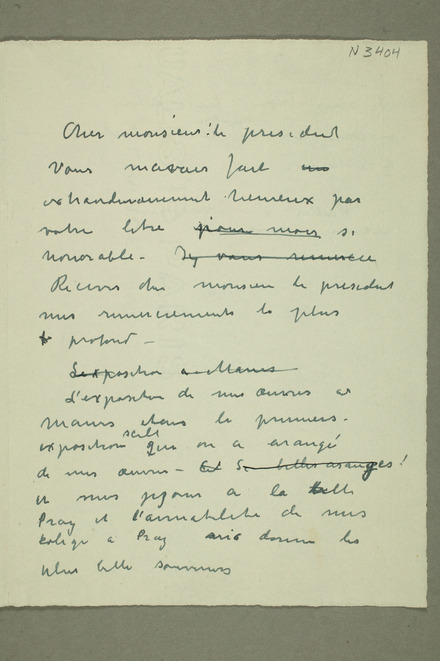 N 3404
Cher monsieur le president
Vous mavais fait un
extraordinairement heureux par
votre letre pour moi si
honorable -
Receves cher monsieur le president
mes remerciements le plus
profond -
L'exposition a Manes
L'exposition de mes œuvres a
Manes etais le premiers
exposition seul que on a arangé
de mes œuvres - Et Si belles aranges!
et mes sejour a la belle
Prag et l'aimabilite de mes
colegi a Prag donne les
plus belle souvenirs